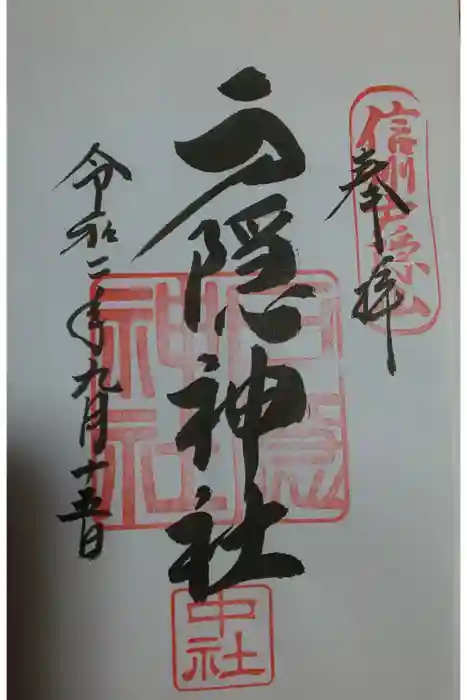 奉拝
信州戸隠山
戸隠神社
戸隠神社
中社
令和二年九月十五日